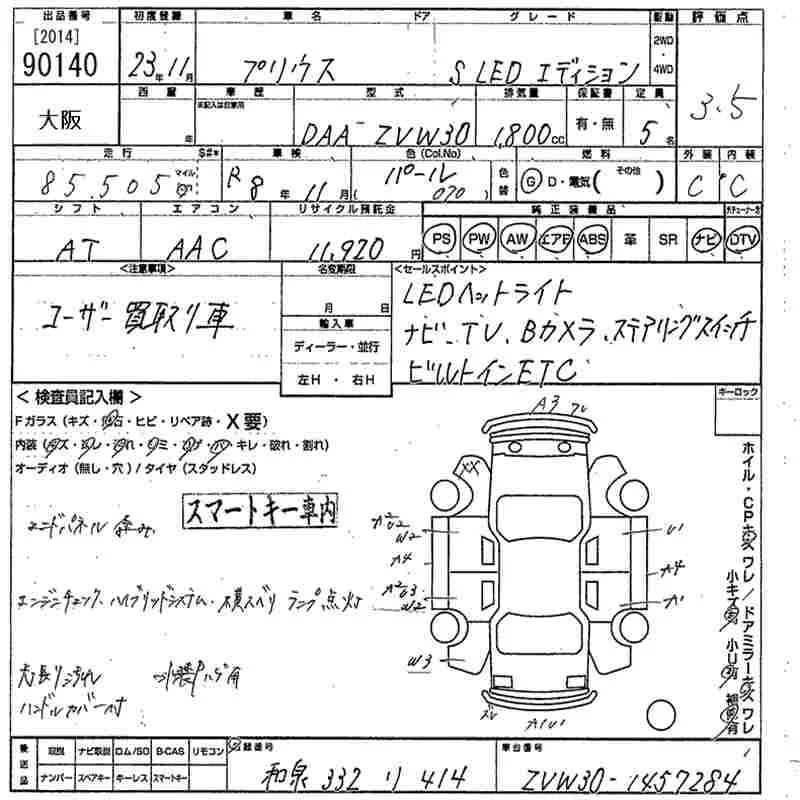 出品番号 初度登録 車名 ドア グレード 駆動 評価点
[2014]
90140 23年11月 プリウス S LED エディション 2WD・4WD 3.5
大阪 西暦 年 車歴 未記入は自家用 型式 DAA-ZVW30 排気量 1,800cc 保証書 有・無 定員 5名
走行 S#* 車検 色(Col.No) 燃料 外装 内装
85,505 マイル km R8年11月 パール (070) 色替 G D・電気(その他) C C
シフト エアコン リサイクル預託金 純正装備品
AT AAC 11,920円 PS PW AW エアB ABS 革 SR ナビ DTV
<注意事項> 名変期限 <セールスポイント>
ユーザー買取り車 月 日 LEDヘットライト
輸入車 ナビ、TV、Bカメラ、ステアリングスイッチ
ディーラー・並行 ビルトインETC
左H・右H
<検査員記入欄> キーロック
Fガラス(キズ・飛石・ヒビ・リペア跡・X要)
内装(キズ・ヨレ・汚れ・シミ・コゲ・穴・キレ・破れ・割れ)
オーディオ(無し・穴)/タイヤ(スタッドレス)
スマートキー車内
エンドパネル 歪み
エンジンチェック、ハイブリッドシステム、横スベリ ランプ点灯
内張り汚れ 内装ハゲ有
ハンドルカバー付
A3 ワレ
XX
A2 U2
W2
A4
A2 U3
W2
W3
U1
A4
A1
ズレ
A1U1
ホイル・CPキズ ワレ/ドアミラーキズ ワレ
小キズ有 小U有 補修有
後送品 取説 ナビ取説 ロム/SD B-CAS リモコン
ナンバー スペアキー キーレス スマートキー
登録番号 和泉 332 リ 414
車台番号 ZVW30-1457284